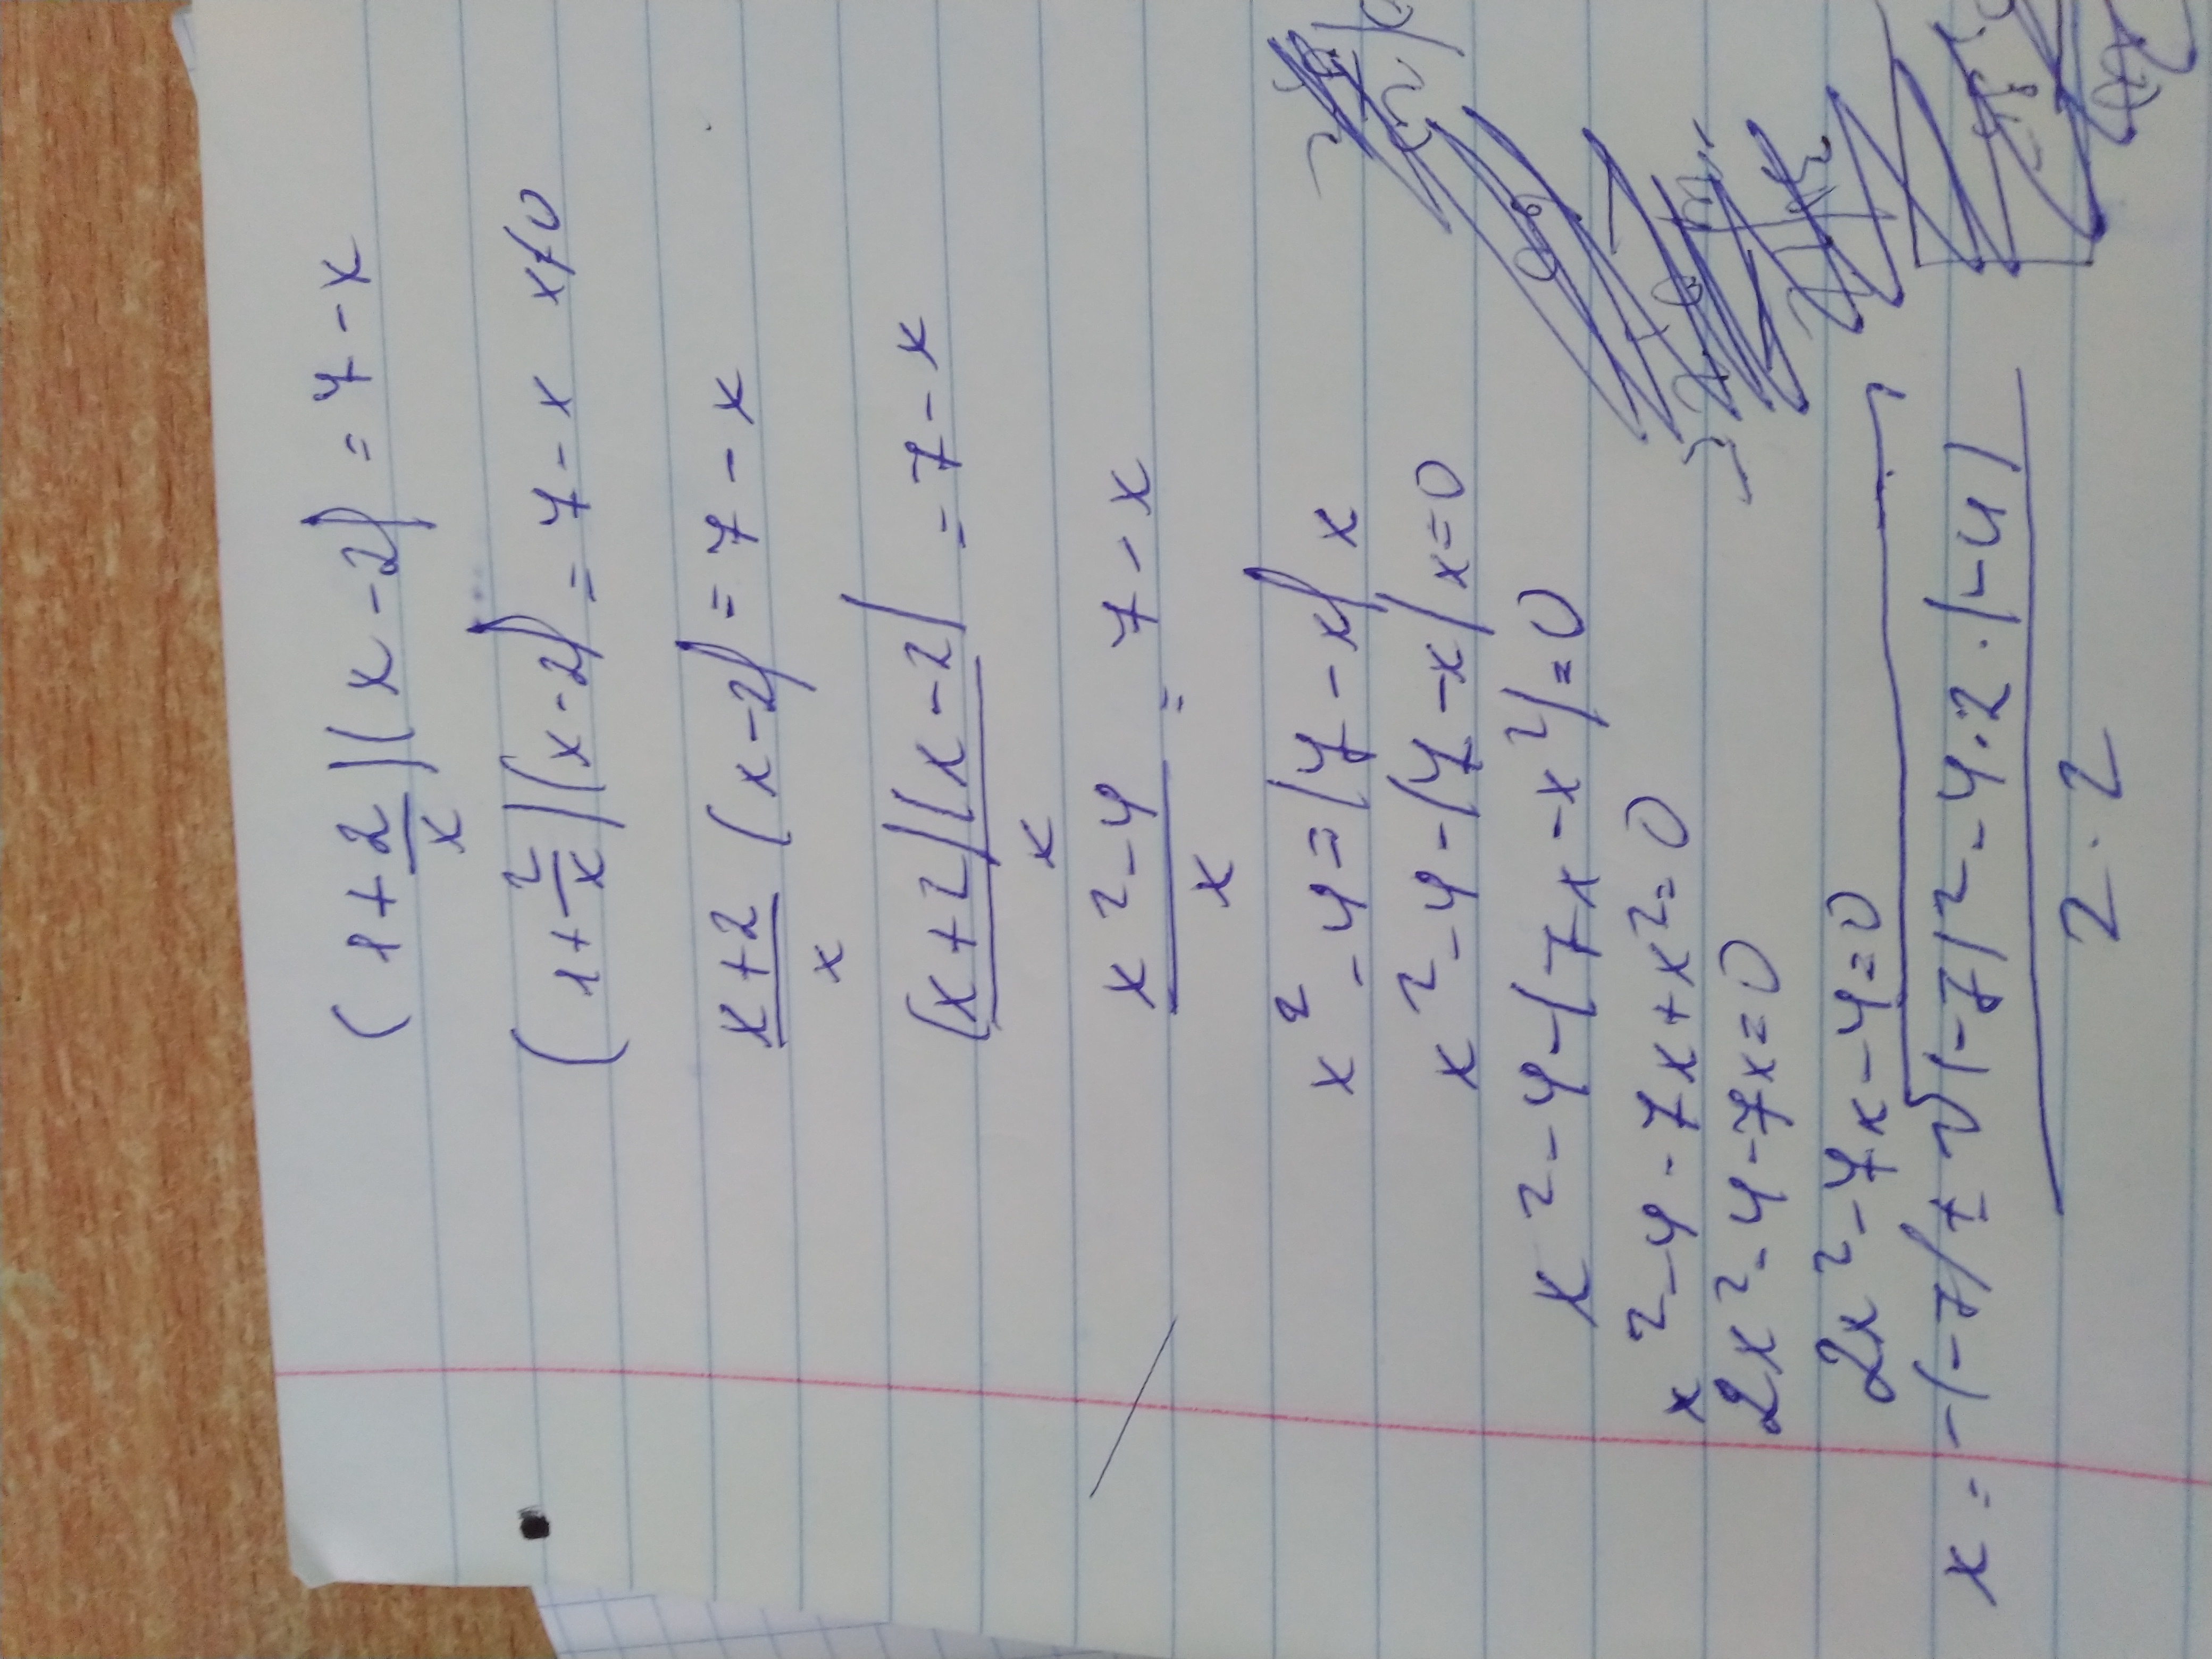 (1+2/x)(x-2)=7-x
(1+2/x)(x-2)=7-x x≠0
x+2/x (x-2)=7-x
(x+2)(x-2)/x =7-x
x²-4/x = 7-x
x²-4=(7-x)x
x²-4-(7-x)x=0
x²-4-(7x-x²)=0
x²-4-7x+x²=0
2x²-4-7x=0
2x²-7x-4=0
x=-(-7)±√(-7)²-4·2·(-4)/2·2